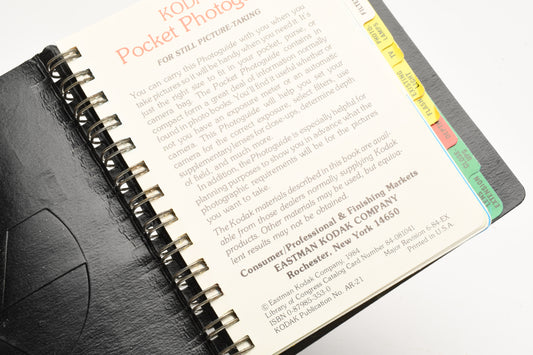 KODA
Pocket Photogu
FOR STILL PICTURE-TAKING
You can carry this Photoguide with you when you
take pictures so it will be handy when you need it. It's
just the right size to fit in your pocket, purse, or
camera bag. The Pocket Photoguide contains in
compact form a great deal of information normally
found in photo books. You'll find it useful whether or
not you have an exposure meter or an automatic
camera. This Photoguide will help you set your
camera for the correct exposure, select filters, use
supplementary lenses for close-ups, determine depth
of field, and much more.
In addition, the Photoguide is especially helpful for
planning purposes to show you in advance what the
photographic requirements will be for the pictures
you want to take.
The Kodak materials described in this book are avail-
able from those dealers normally supplying Kodak
products. Other materials may be used, but equiva-
lent results may not be obtained.
Consumer/Professional & Finishing Markets
EASTMAN KODAK COMPANY
Rochester, New York 14650
© Eastman Kodak Company, 1984
Library of Congress Catalog Card Number 84-081041
ISBN 0-87985-353-0 Major Revision 6-84-EX
KODAK Publication No. AR-21 Printed in U.S.A.
PHOTO
LAMPS
TV
EXISTING
LIGHT
FLASH
CLOSE
UPS
LENS
EXTENSION